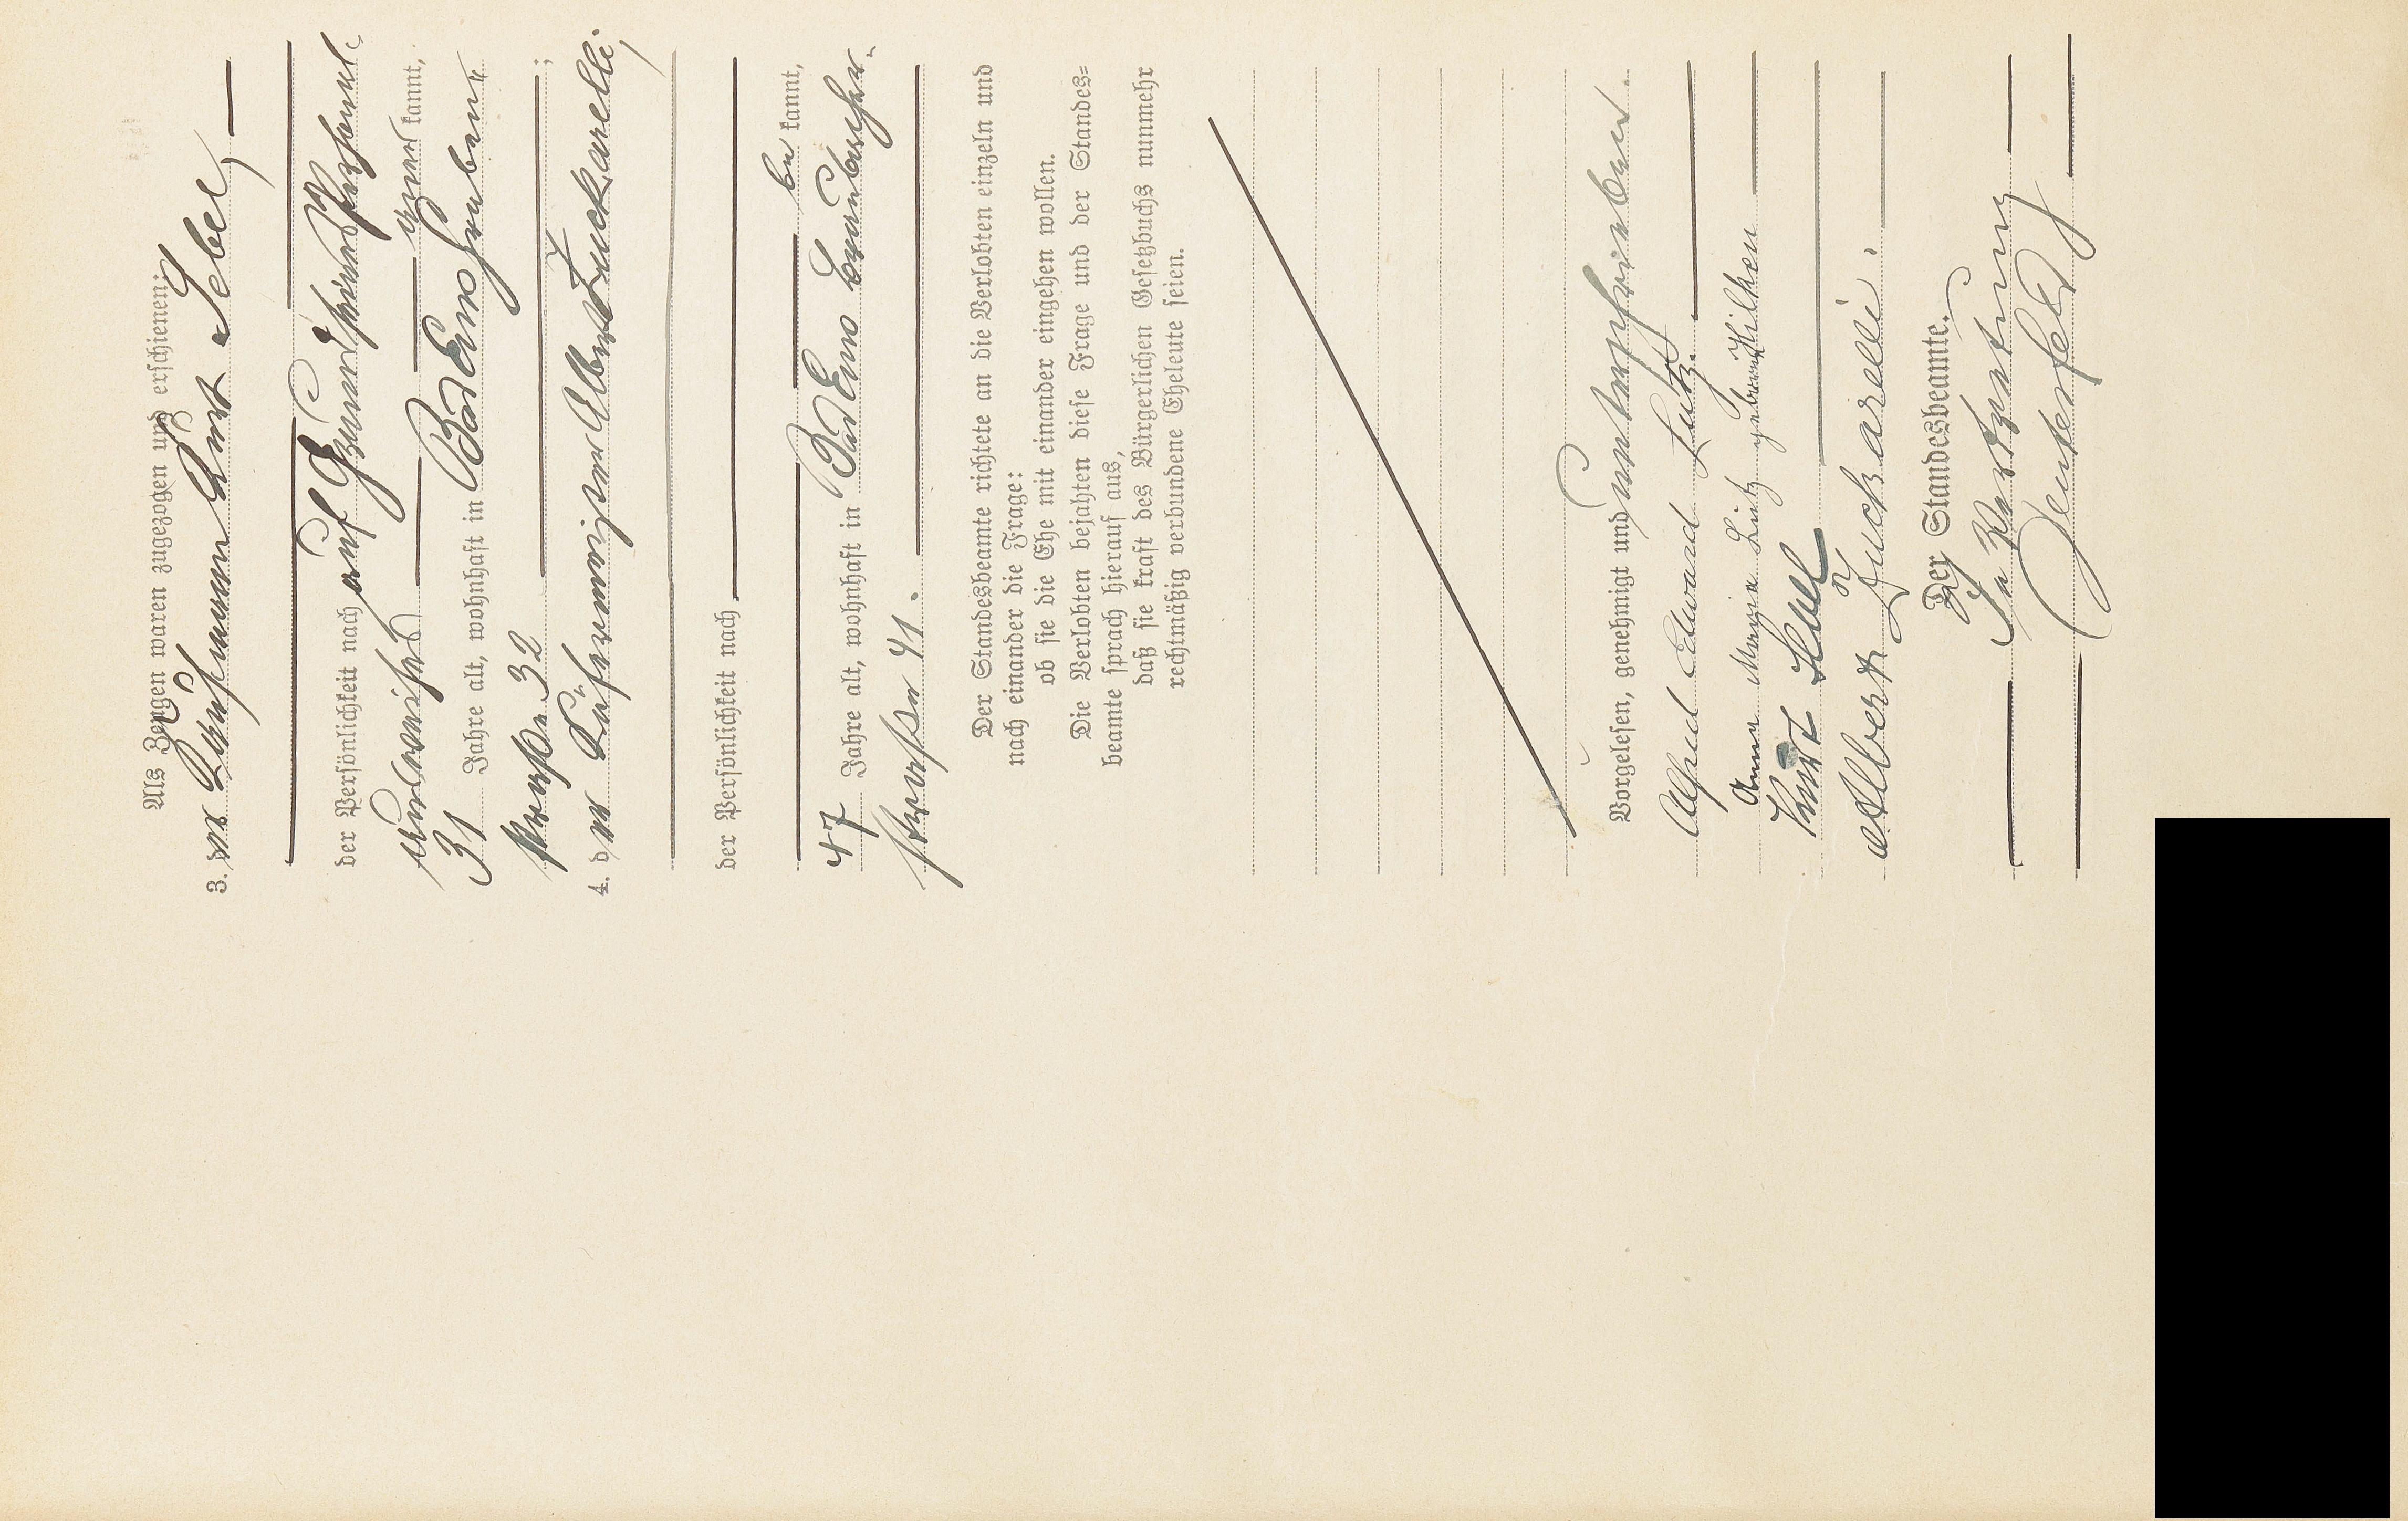 Als Zeugen waren zugezogen und erschienen:
3. der Kaufmann Kurt Sebel,
der Persönlichkeit nach auf Grund seines Personal-
ausweises anerkannt,
31 Jahre alt, wohnhaft in Bad Ems Graben-
straße 32;
4. der Küfermeister Albert Zuckarelli,
der Persönlichkeit nach
bekannt,
47 Jahre alt, wohnhaft in Bad Ems
straße 41.
Der Standesbeamte richtete an die Verlobten einzeln und
nach einander die Frage:
ob sie die Ehe mit einander eingehen wollen.
Die Verlobten bejahten diese Frage und der Standes=
beamte sprach hierauf aus,
daß sie kraft des Bürgerlichen Gesetzbuchs nunmehr
rechtmäßig verbundene Eheleute seien.
Vorgelesen, genehmigt und unterschrieben.
Alfred Edward Lutz.
Anna Maria Lutz geborene Hilken
Kurt Sebel
Albert Zuckarelli.
Der Standesbeamte.
In Vertretung